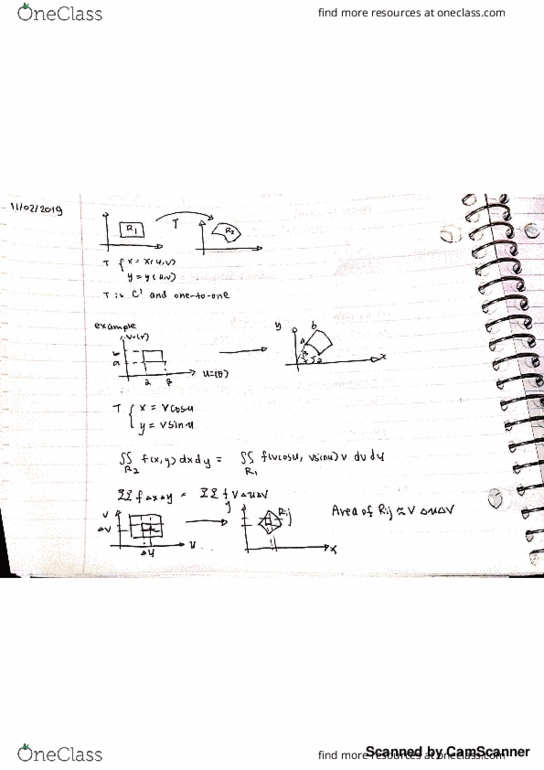 OneClass find more resources at oneclass.com
11/02/2019
R1 T R2
T { x = x(u,v)
y = y(u,v)
T is C¹ and one-to-one
example
v=(r) y b
b a
a x
α β u=(θ)
T { x = v cosu
y = v sinu
∬ f(x,y) dxdy = ∬ f(vcosu, vsinu) v dudv
R2 R1
ΣΣ f ΔxΔy = ΣΣ f vΔuΔv
v y Rij Area of Rij ≈ v ΔuΔv
Δv
Δu u x
OneClass find more resources at oneclass.com
Scanned by CamScanner